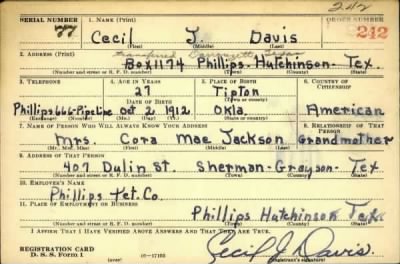 242
SERIAL NUMBER 1. NAME (Print) ORDER NUMBER
77 Cecil J. Davis 242
(First) (Middle) (Last)
2. ADDRESS (Print) transferred
Box 1174 Phillips - Hutchinson - Tex.
(Number and street or R. F. D. number) (Town) (County) (State)
3. TELEPHONE 4. AGE IN YEARS 5. PLACE OF BIRTH 6. COUNTRY OF CITIZENSHIP
27 Tipton
DATE OF BIRTH (Town or county)
Phillips 666-Pipeline Oct 2 1912 Okla. American
(Exchange) (Number) (Mo.) (Day) (Yr.) (State or country)
7. NAME OF PERSON WHO WILL ALWAYS KNOW YOUR ADDRESS 8. RELATIONSHIP OF THAT PERSON
Mrs. Cora Mae Jackson Grandmother
(Mr., Mrs., Miss) (First) (Middle) (Last)
9. ADDRESS OF THAT PERSON
407 Dulin St. Sherman - Grayson - Tex
(Number and street or R. F. D. number) (Town) (County) (State)
10. EMPLOYER'S NAME
Phillips Pet. Co.
11. PLACE OF EMPLOYMENT OR BUSINESS
Phillips Hutchinson Texas
(Number and street or R. F. D. number) (Town) (County) (State)
I AFFIRM THAT I HAVE VERIFIED ABOVE ANSWERS AND THAT THEY ARE TRUE.
REGISTRATION CARD
D. S. S. FORM 1 (over) 16—17105
Cecil J. Davis.
(Registrant's signature)